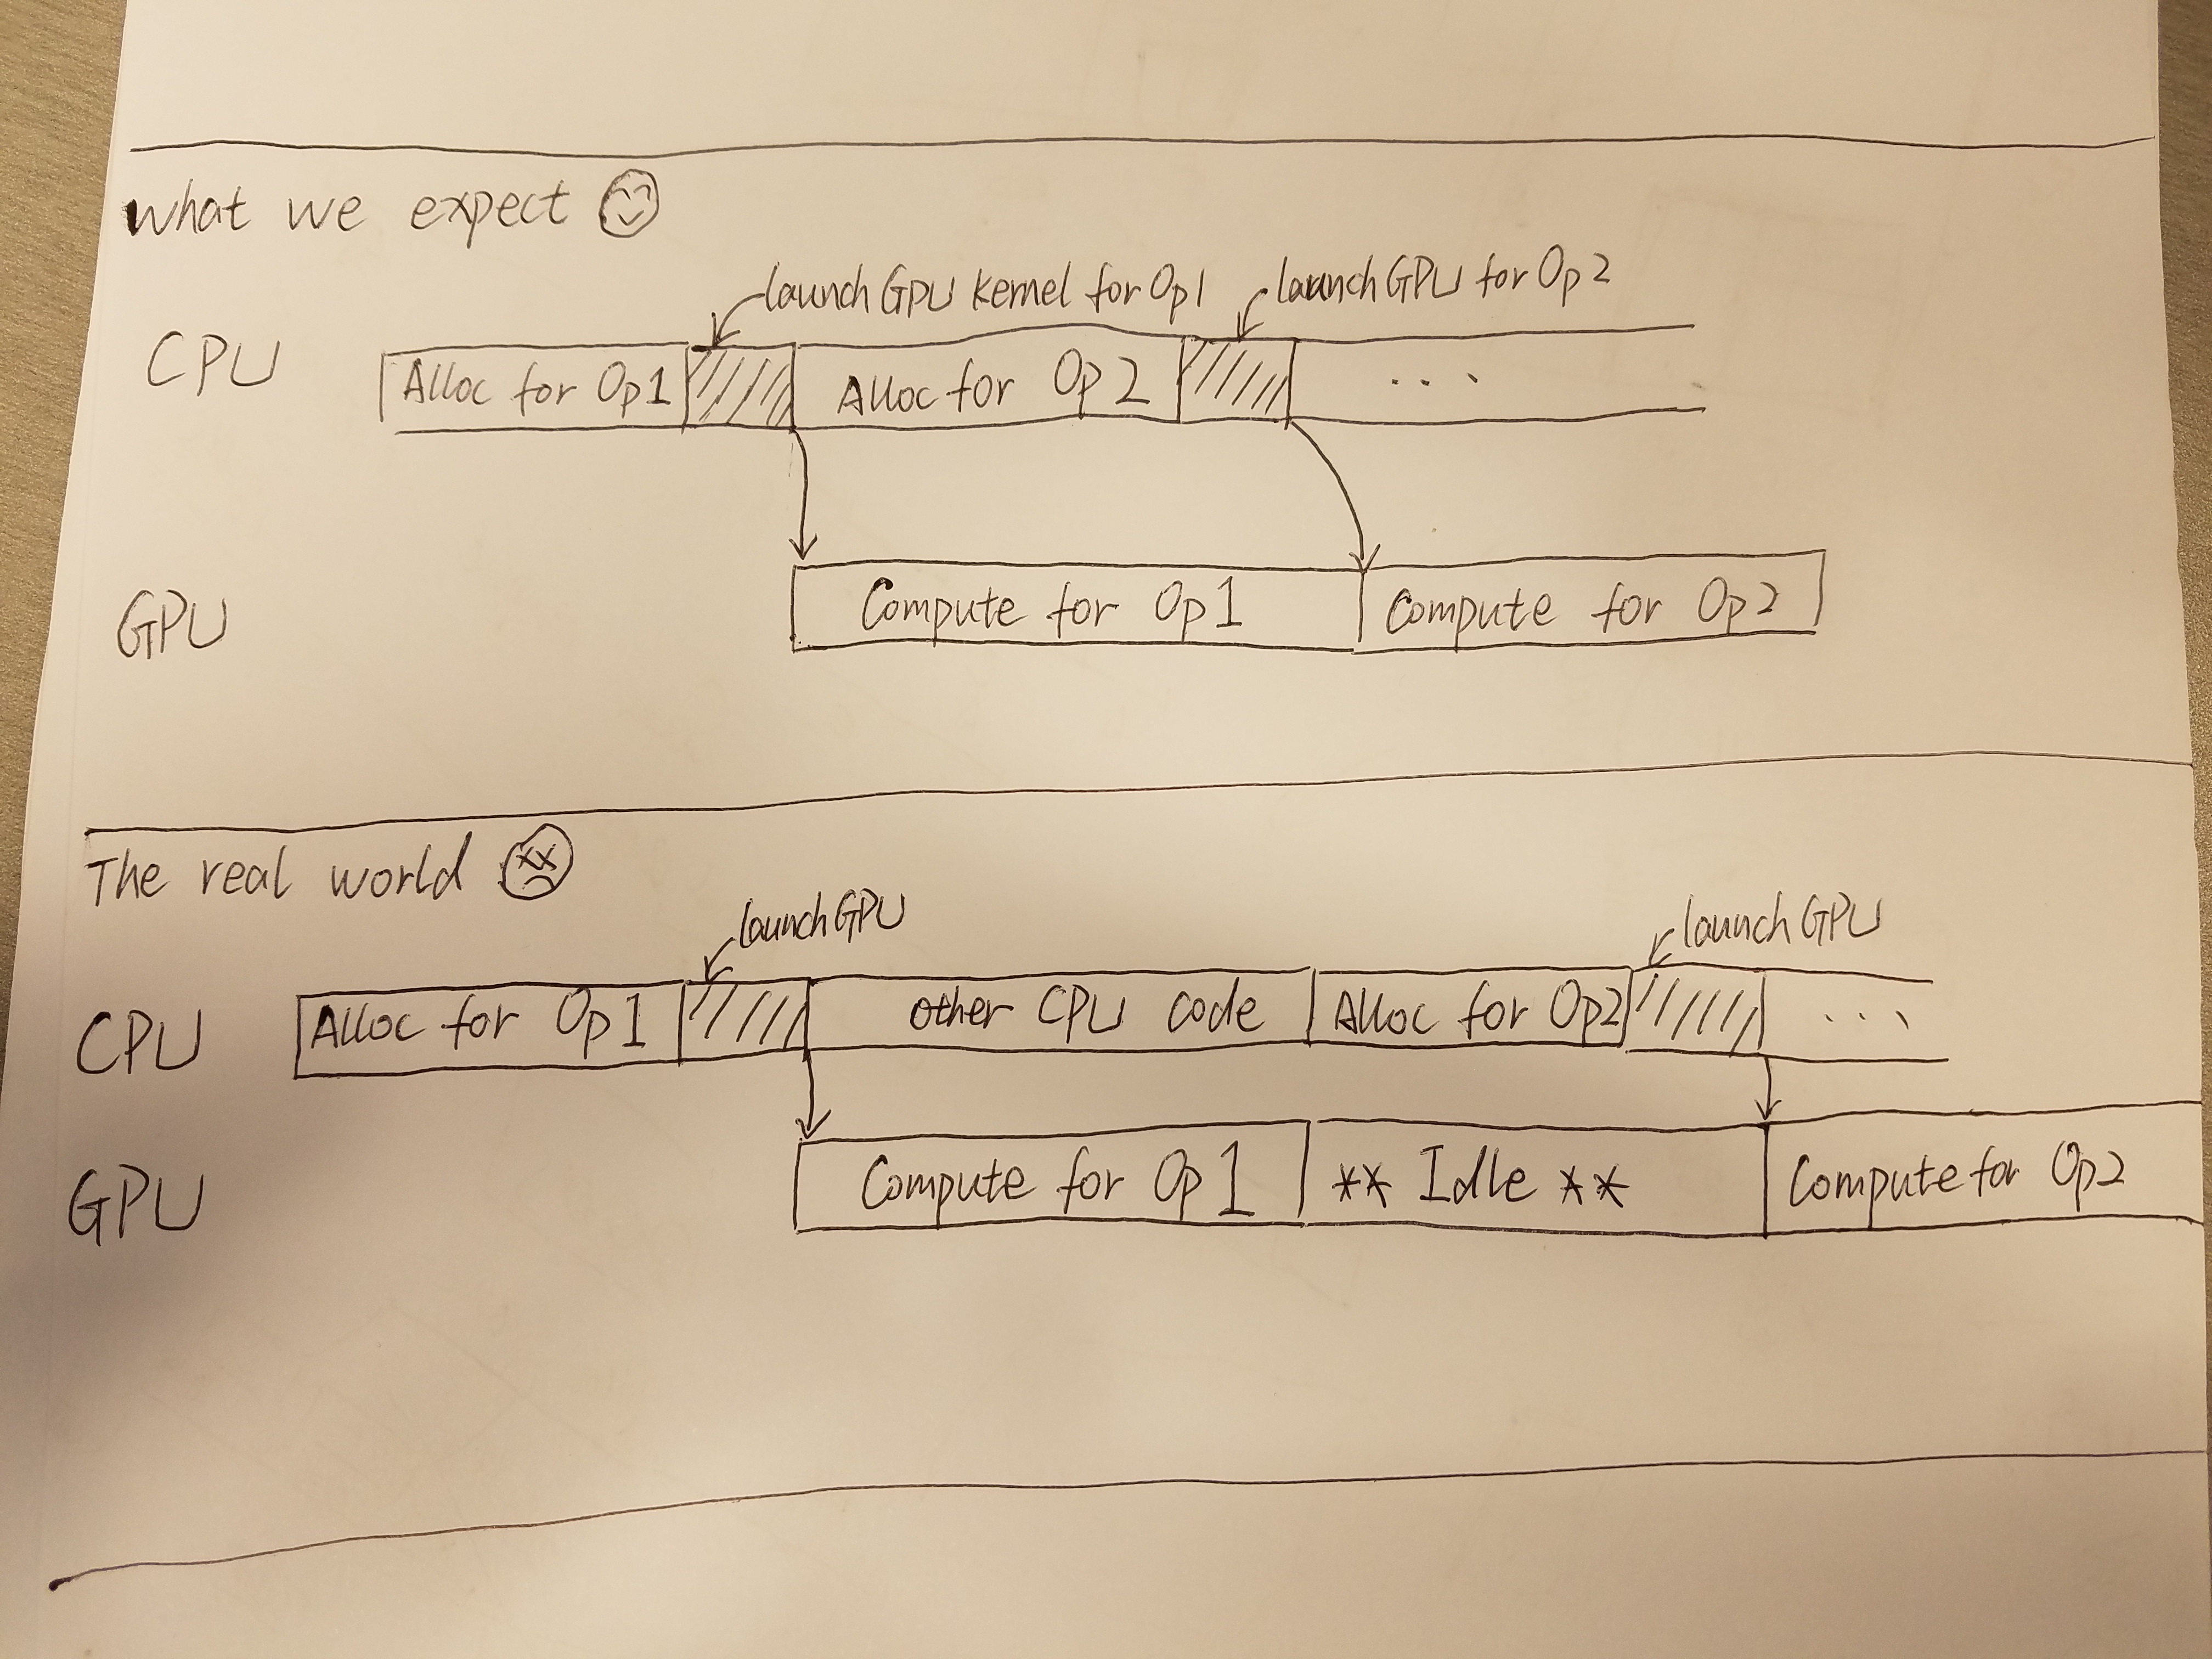 what we expect
launch GPU kernel for Op1
launch GPU for Op2
CPU
Alloc for Op1
Alloc for Op2
...
GPU
Compute for Op1
Compute for Op2
The real world
launch GPU
launch GPU
CPU
Alloc for Op1
other CPU code
Alloc for Op2
...
GPU
Compute for Op1
** Idle **
Compute for Op2